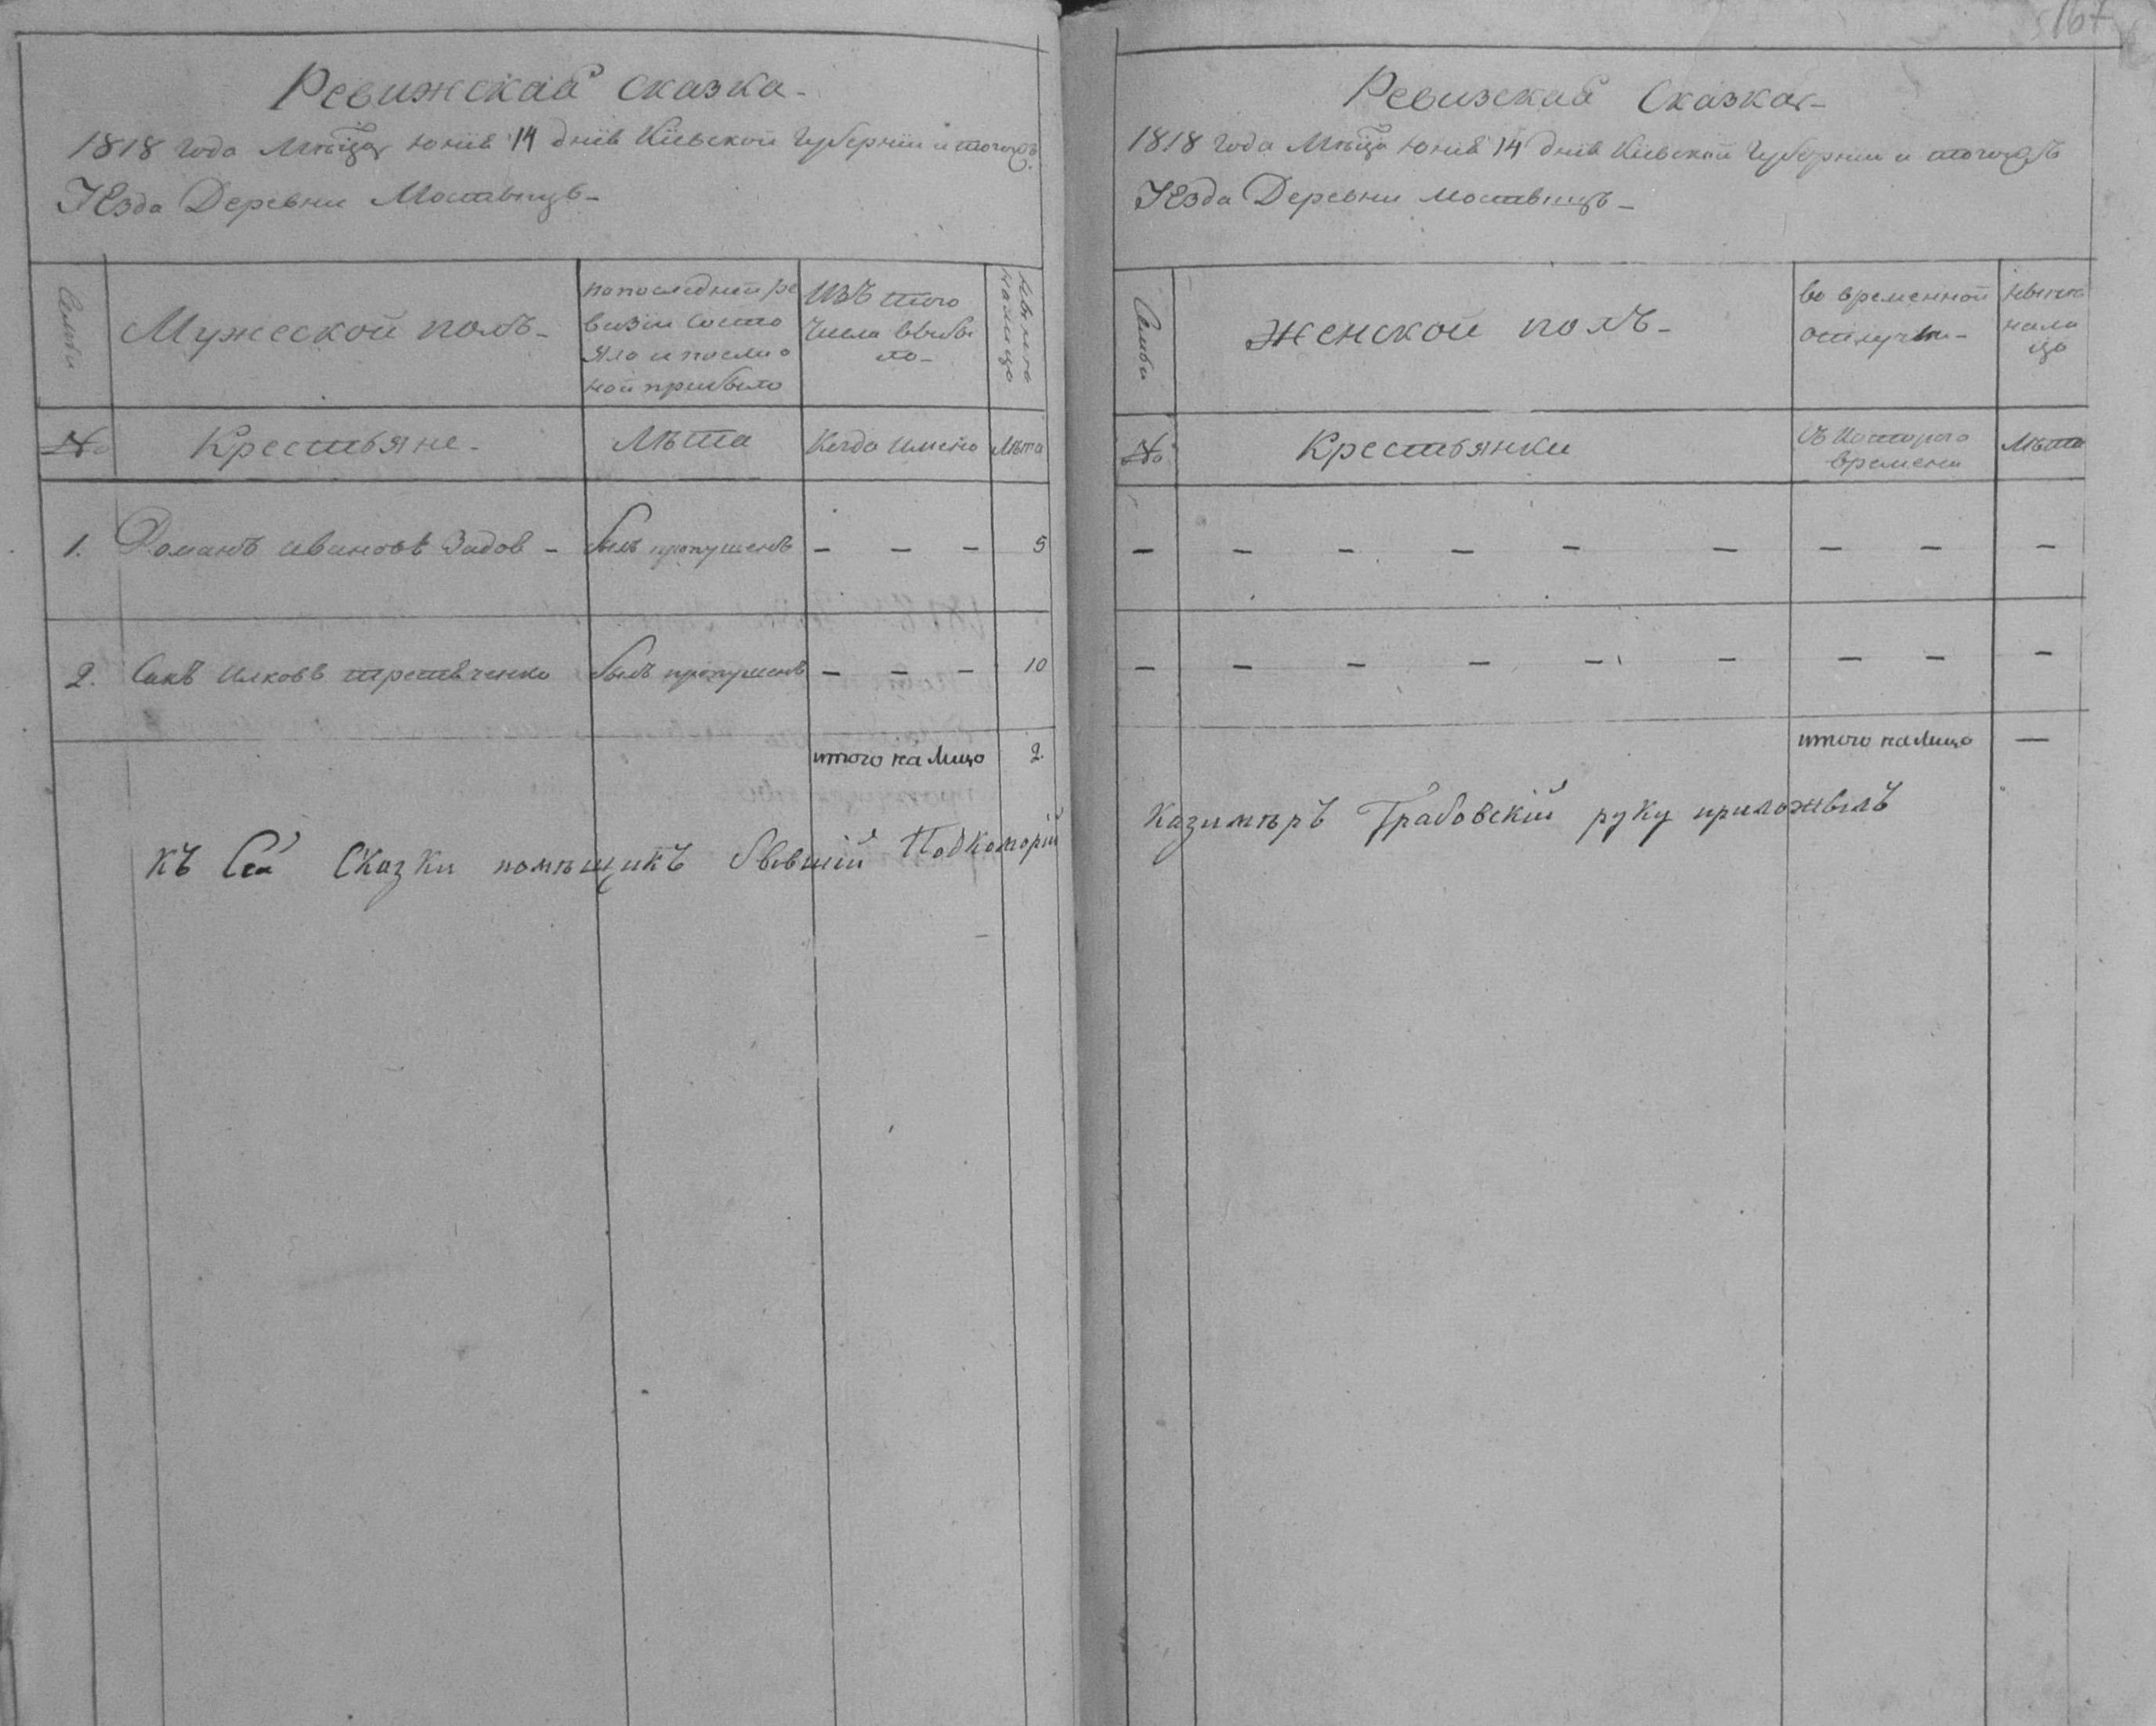 Ревижская сказка -
1818 года Мѣсяца юнiя 14 дня Кiевской Губернiи и тогожъ
Уезда Деревни Мостыщъ -
Семьи
Мужеской полъ -
по последней ре
визiи состо
яло и после о
ной прибыло
Изъ того
числа выбы
ло -
Нынѣ
налицо
№
Крестьяне -
Лѣта
Когда имено
Лѣта
1. Романъ Ивановъ Задов - былъ пропушенъ - - - 5
2. Сакъ Илковъ третяченко былъ пропушенъ - - - 10
итого на лицо 2.
Къ Сей Сказки помѣщикъ бывшiй Подкоморiй
167
Ревизская Сказка -
1818 года Мѣсяца юнiя 14 дня Кiевской Губернiи и тогожъ
Уезда Деревни Мостыщъ -
Семьи
Женской полъ -
во временной
отлучки -
Нынѣ
нали
цо
№
Крестьянки
Съ котораго
времени
Лѣта
- - - - - - - - -
- - - - - - - - -
итого на лицо -
Казимѣръ Грабовскiй руку приложылъ